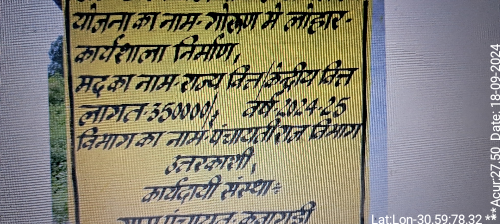 योजना का नाम- गोरूण मे लोहार-
कार्यशाला निर्माण,
मद का नाम- राज्य वित्त/केंद्रीय वित्त
लागत-350000/, वर्ष-2024-25
विभाग का नाम-पंचायतीराज विभाग
उत्तरकाशी,
कार्यदायी संस्था:-
ग्राम पंचायत-
Lat:Lon-30.59:78.32
Acur:27.50 Date: 18-09-2024